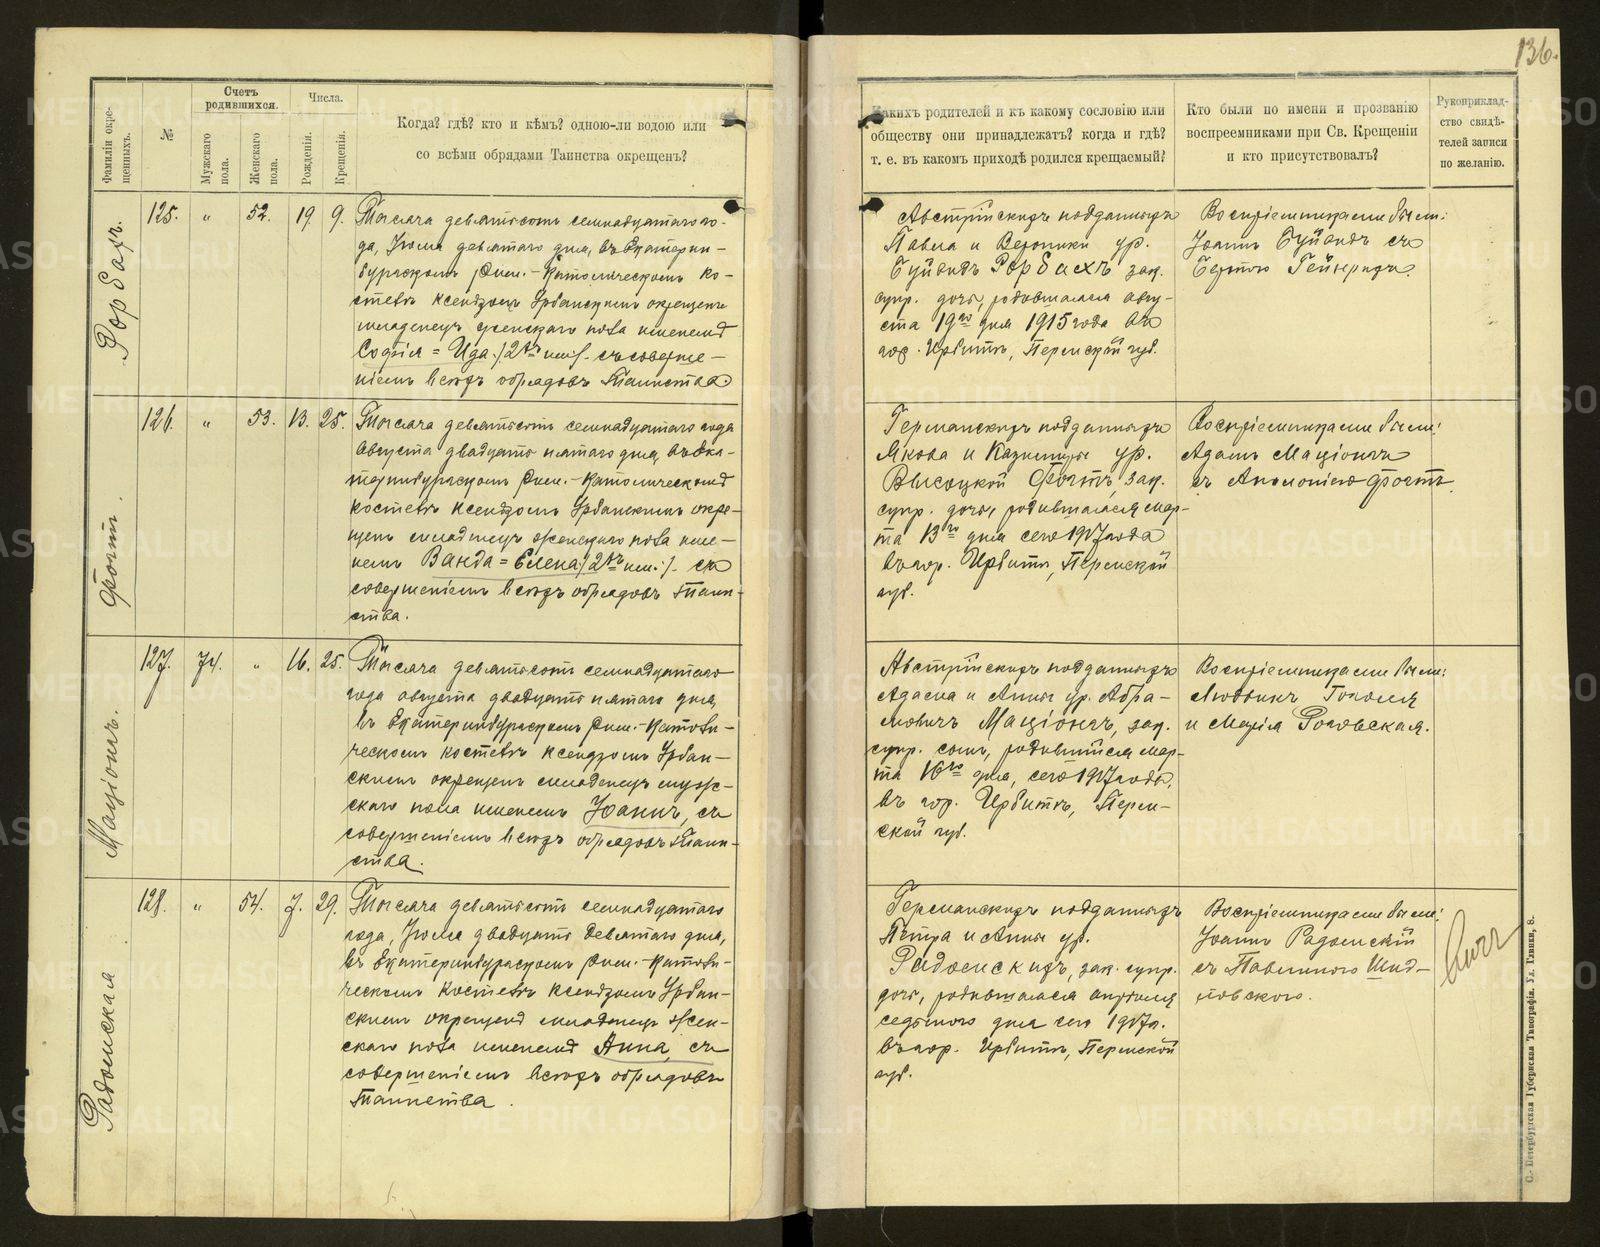 136.
Фамиліи окре-
щенныхъ.
№
Счетъ
родившихся.
Мужскаго
пола.
Женскаго
пола.
Числа.
Рожденія.
Крещенія.
Когда? гдѣ? кто и кѣмъ? одною-ли водою или
со всѣми обрядами Таинства окрещенъ?
Какихъ родителей и къ какому сословію или
обществу они принадлежатъ? когда и гдѣ?
т. е. въ какомъ приходѣ родился крещаемый?
Кто были по имени и прозванію
воспреемниками при Св. Крещеніи
и кто присутствовалъ?
Рукоприклад-
ство свидѣ-
телей записи
по желанію.
Рорбахъ.
125. " 52. 19 9.
Тысяча девятьсотъ семнадцатаго го-
да, Іюля девятаго дня, въ Екатерин-
бургскомъ Рим.-Католическомъ ко-
стелѣ ксендзомъ Урбанскимъ окрещенъ
младенецъ женскаго пола именемъ
Софія = Ида /2хъ им./ съ соверше-
ніемъ всѣхъ обрядовъ Таинства.
Австрійскихъ подданныхъ
Павла и Вероники ур.
Буйвидъ Рорбахъ зак.
супр. дочь, родившаяся авгу-
ста 19го дня 1915 года въ
гор. Ирбитѣ, Пермской губ.
Воспріемниками были:
Іоаннъ Буйвидъ съ
Бертою Гейнрихъ.
Фогтъ.
126. " 53. 13. 25.
Тысяча девятьсотъ семнадцатаго года
Августа двадцать пятаго дня, въ Ека-
теринбургскомъ Рим.-Католическомъ
костелѣ ксендзомъ Урбанскимъ окре-
щенъ младенецъ женскаго пола име-
немъ Ванда = Елена /2хъ им./ съ
совершеніемъ всѣхъ обрядовъ Таин-
ства.
Германскихъ подданныхъ
Якова и Казимиры ур.
Высоцкой Фогтъ, зак.
супр. дочь, родившаяся мар-
та 13го дня сего 1917 года
въ гор. Ирбитѣ, Пермской
губ.
Воспріемниками были:
Адамъ Маціонгъ
съ Аполоніею Фогтъ.
Маціонгъ.
127. 74. " 16. 25.
Тысяча девятьсотъ семнадцатаго
года августа двадцать пятаго дня,
въ Екатеринбургскомъ Рим.-Католи-
ческомъ костелѣ ксендзомъ Урбан-
скимъ окрещенъ младенецъ муж-
скаго пола именемъ Іоаннъ, съ
совершеніемъ всѣхъ обрядовъ Таин-
ства.
Австрійскихъ подданныхъ
Адама и Анны ур. Абра-
мовичъ Маціонгъ, зак.
супр. сынъ, родившійся мар-
та 16го дня, сего 1917 года,
въ гор. Ирбитѣ, Перм-
ской губ.
Воспріемниками были:
Людвикъ
и Марія Роговская.
Радомская
128. " 54. 7. 29.
Тысяча девятьсотъ семнадцатаго
года, Іюля двадцать девятаго дня,
въ Екатеринбургскомъ Рим.-Католи-
ческомъ костелѣ ксендзомъ Урбан-
скимъ окрещенъ младенецъ жен-
скаго пола именемъ Анна, съ
совершеніемъ всѣхъ обрядовъ
Таинства.
Германскихъ подданныхъ
Петра и Анны ур.
Радомскихъ, зак. супр.
дочь, родившаяся апрѣля
седьмого дня сего 1917 г.
въ гор. Ирбитѣ, Пермской
губ.
Воспріемниками были:
Іоаннъ Радомскій
съ Павлиною Шид-
ловскою.
С.-Петербургская Губернская Типографія. Ул. Глинки, 8.
METRIKI.GASO-URAL.RU